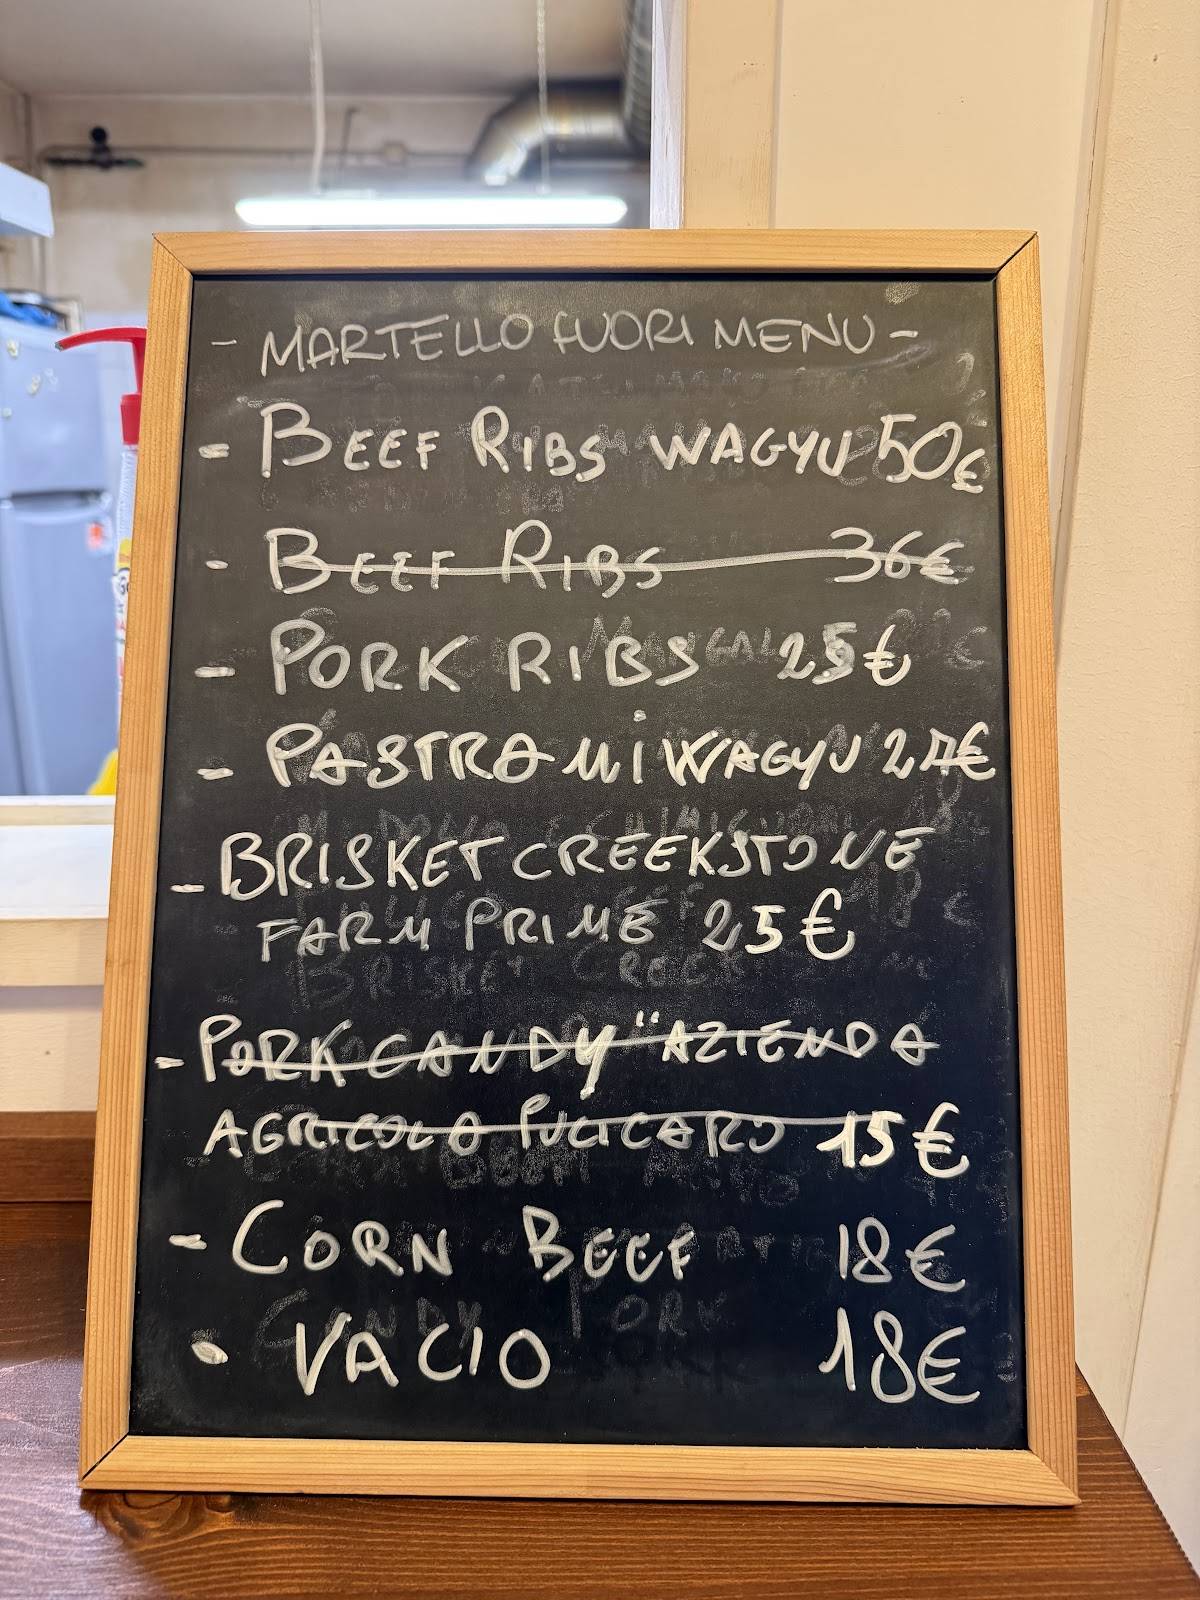 - MARTELLO FUORI MENU -
- BEEF RIBS WAGYU 50€
- BEEF RIBS 36€
- PORK RIBS 25€
- PASTRAMI WAGYU 27€
- BRISKET CREEKSTONE
FARM PRIME 25€
- PORK CANDY "AZIENDA
AGRICOLA PULICARO 15€
- CORN BEEF 18€
- VACIO 18€